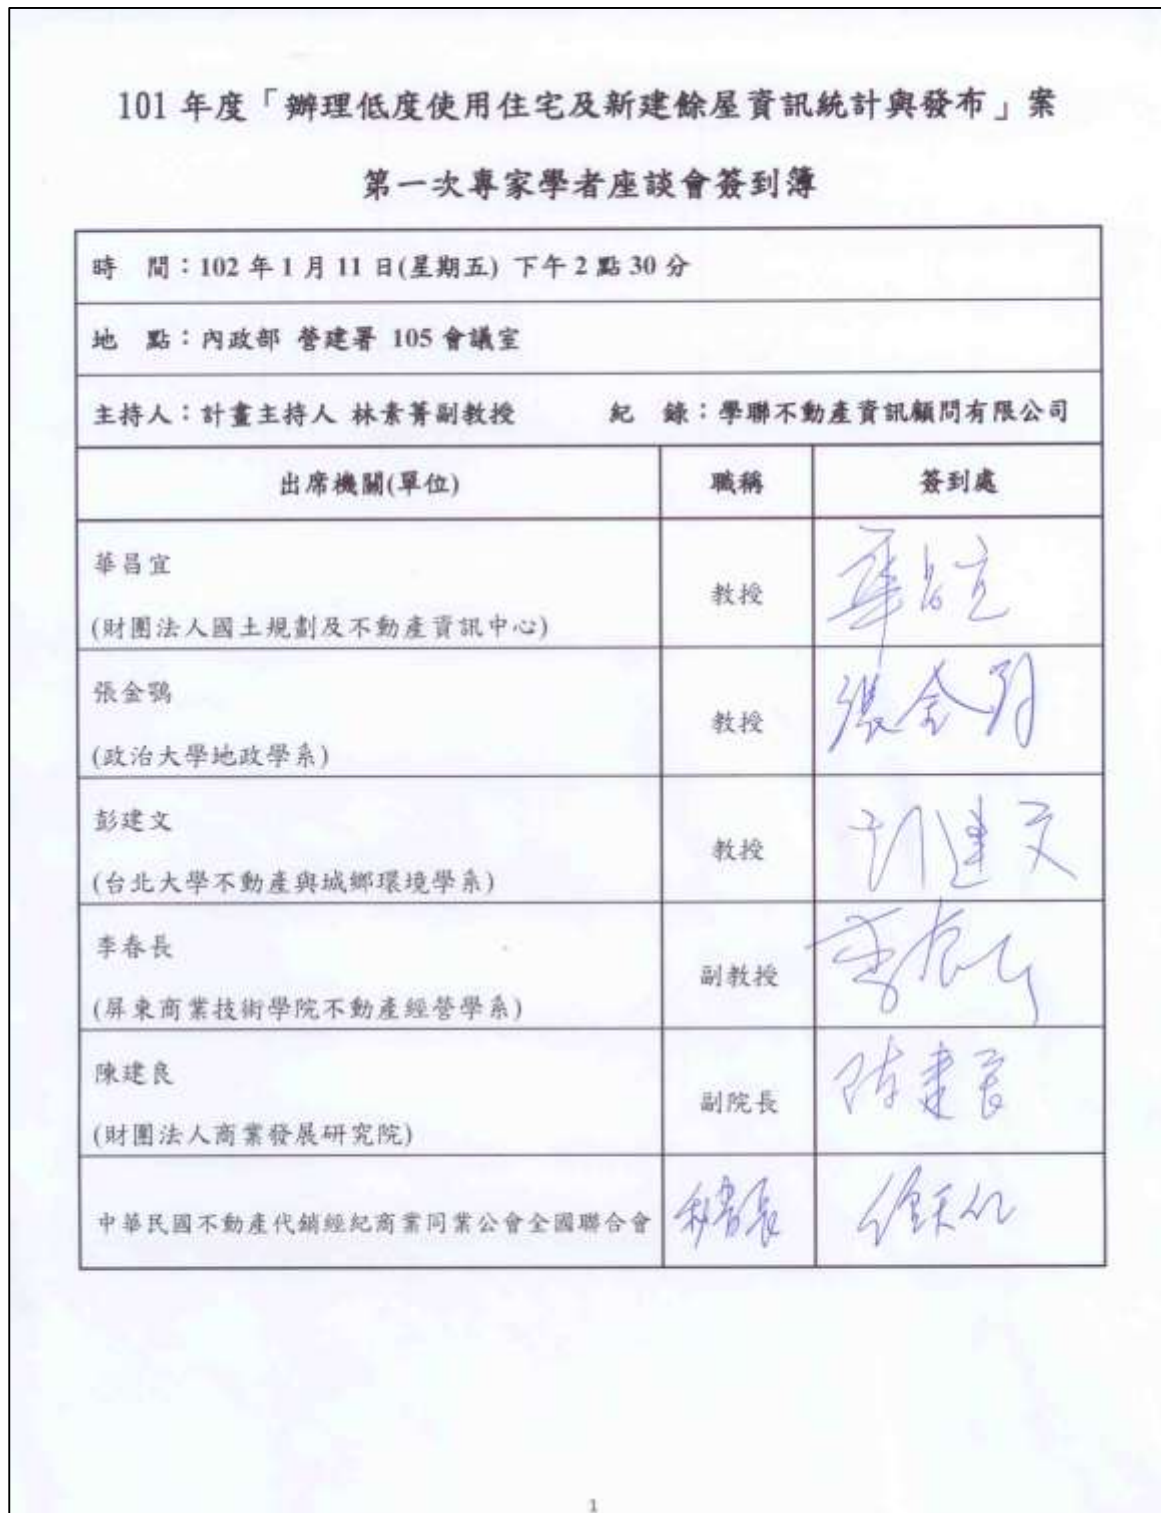 101 年度「辦理低度使用住宅及新建餘屋資訊統計與發布」案
第一次專家學者座談會簽到簿
時　間：102 年 1 月 11 日(星期五) 下午 2 點 30 分
地　點：內政部 營建署 105 會議室
主持人：計畫主持人 林素菁副教授　紀　錄：學聯不動產資訊顧問有限公司
出席機關(單位)　職稱　簽到處
華昌宜
(財團法人國土規劃及不動產資訊中心)
教授
華昌宜
張金鶚
(政治大學地政學系)
教授
張金鶚
彭建文
(台北大學不動產與城鄉環境學系)
教授
彭建文
李春長
(屏東商業技術學院不動產經營學系)
副教授
李春長
陳建良
(財團法人商業發展研究院)
副院長
陳建良
中華民國不動產代銷經紀商業同業公會全國聯合會
秘書長
1